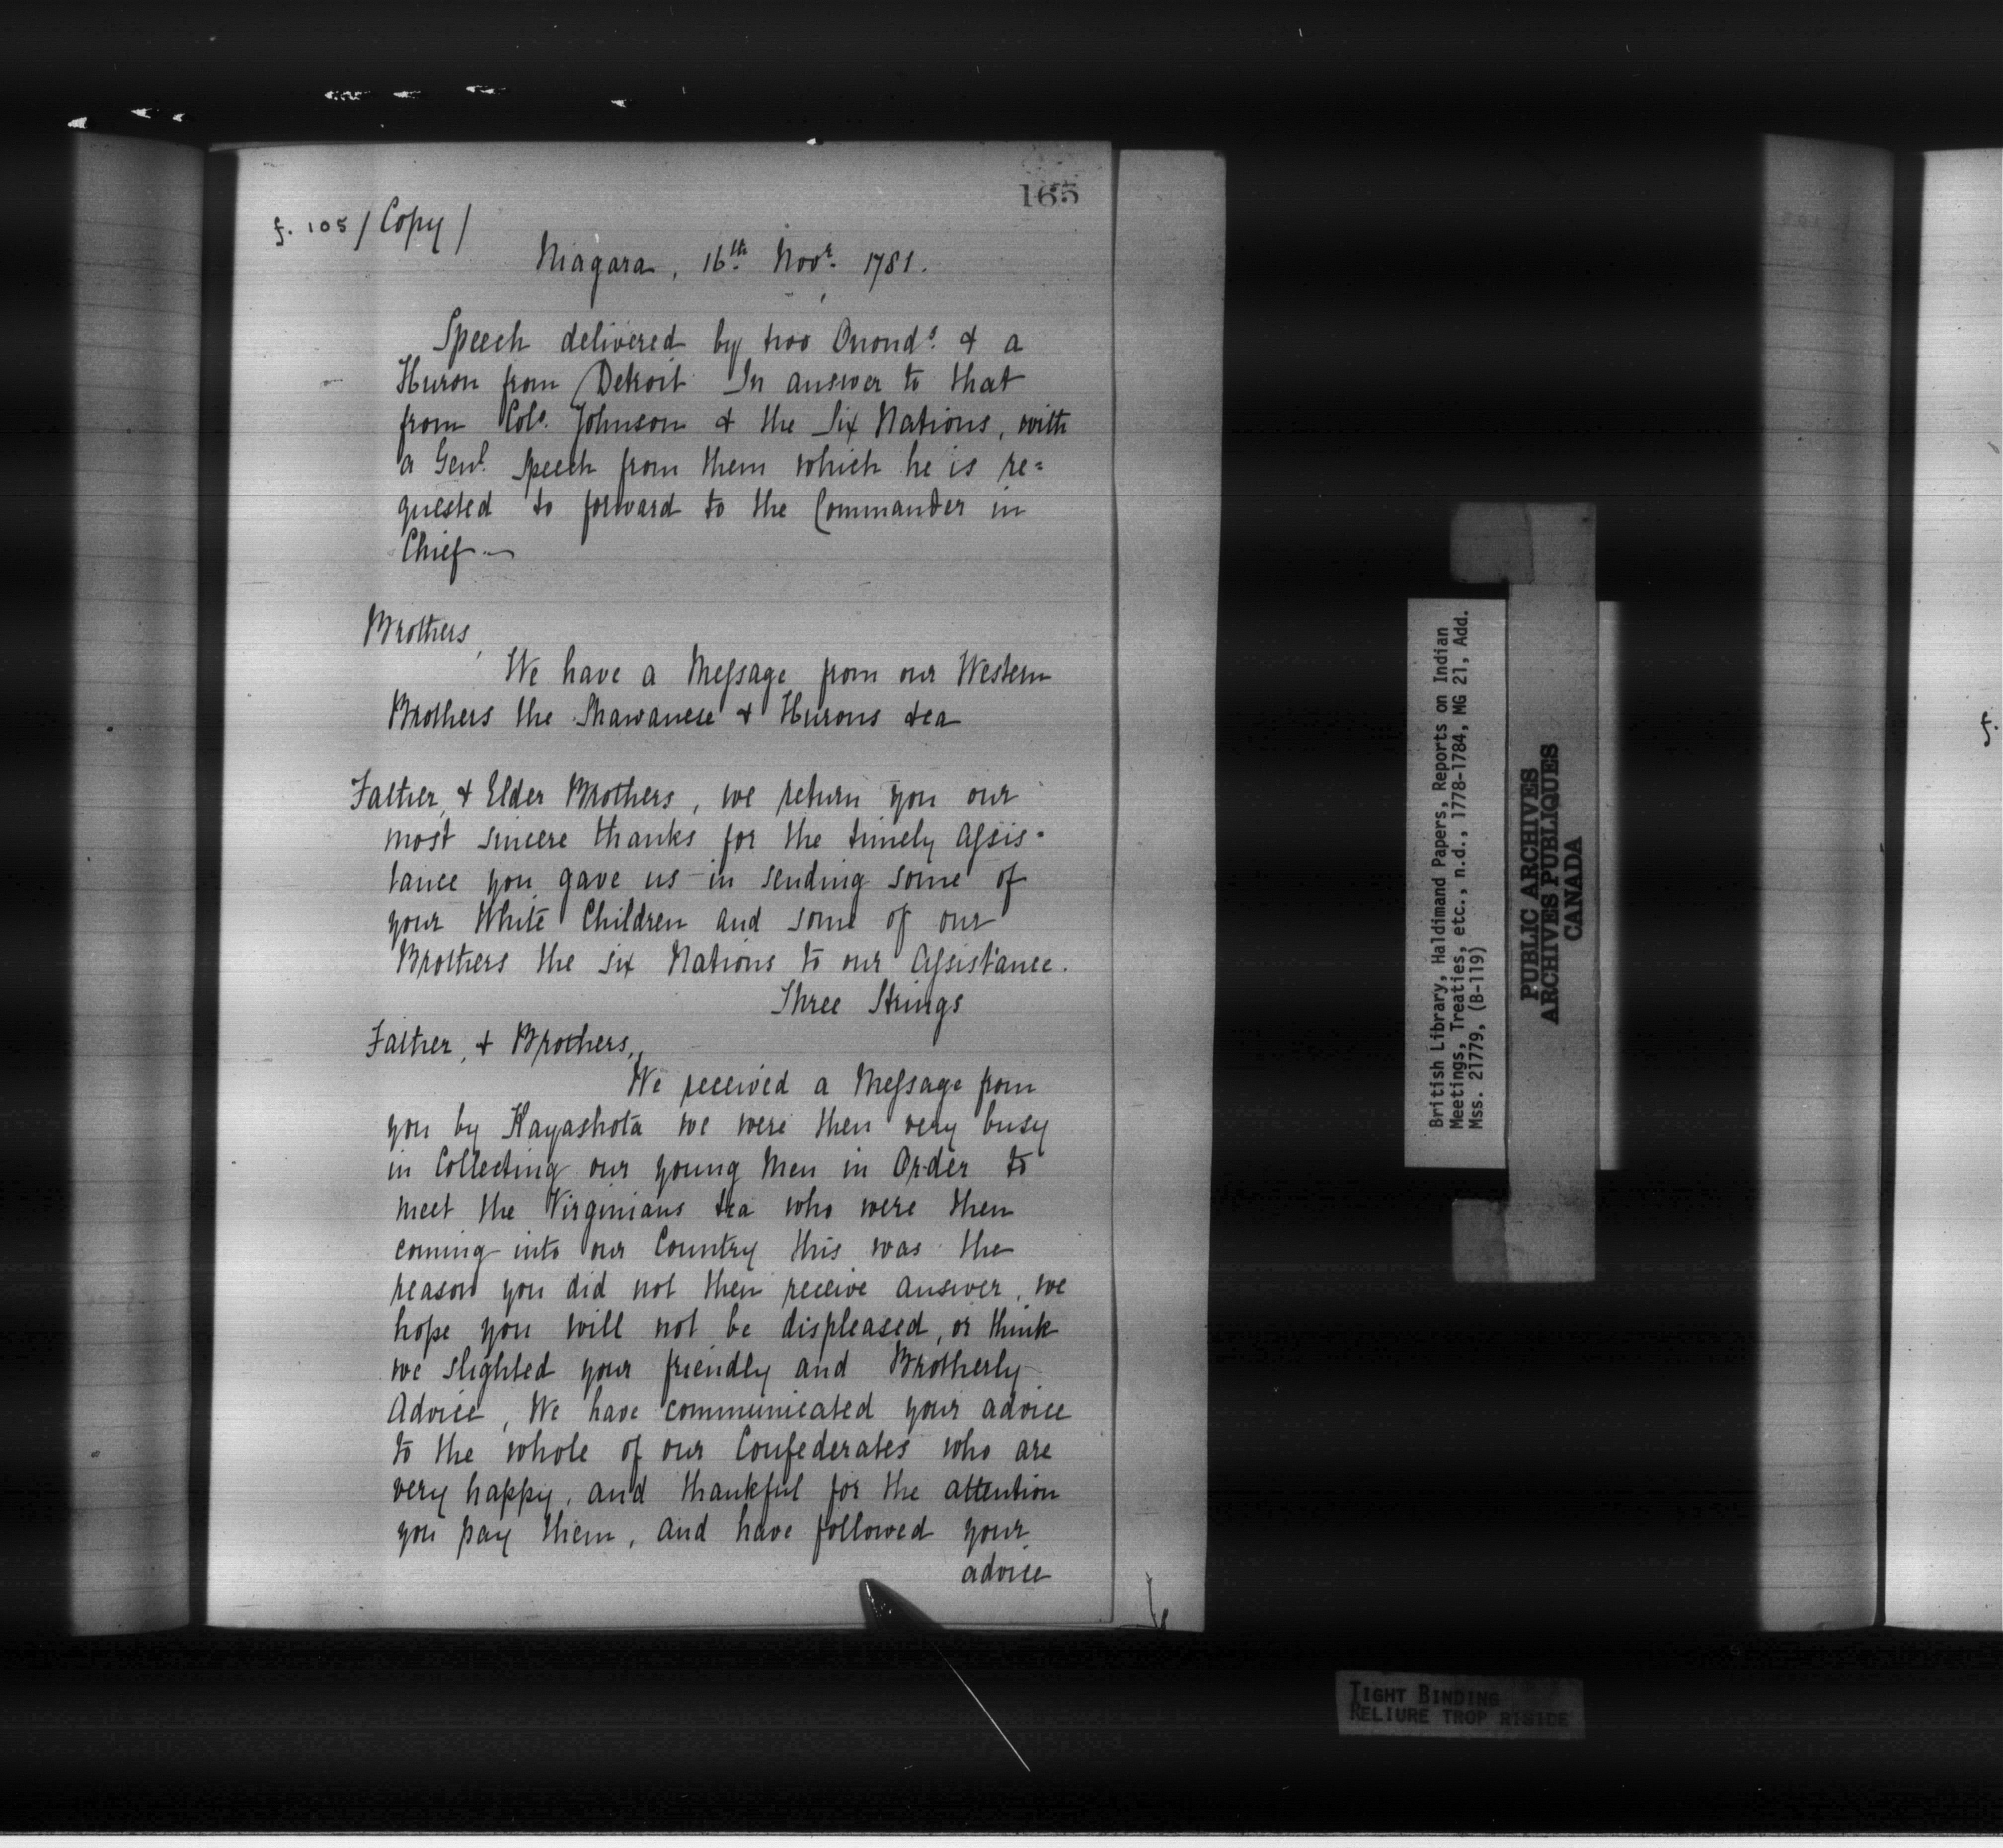 165
f. 105 / Copy /
Niagara, 16th. Novr. 1781.
Speech delivered by two Ononds. & a
Huron from Detroit In answer to that
from Colo. Johnson & the Six Nations, with
a Genl. Speech from them which he is re=
quested to forward to the Commander in
Chief —
Brothers,
We have a Message from our Western
Brothers the Shawanese & Hurons &ca
Father, & Elder Brothers, we return you our
most sincere thanks for the timely Assis-
tance you gave us in sending some of
your White Children and some of our
Brothers the six Nations to our Assistance.
Three Strings
Father, & Brothers,
We received a Message from
you by Kayashota we were then very busy
in Collecting our young Men in Order to
meet the Virginians &ca who were then
coming into our Country this was the
reason you did not then receive answer, we
hope you will not be displeased, or think
we slighted your friendly and Brotherly
Advice, We have communicated your advice
to the whole of our Confederates who are
very happy, and thankful for the attention
you pay them, and have followed your
advice
British Library, Haldimand Papers, Reports on Indian
Meetings, Treaties, etc., n.d., 1778-1784, MG 21, Add.
Mss. 21779, (B-119)
PUBLIC ARCHIVES
ARCHIVES PUBLIQUES
CANADA
TIGHT BINDING
RELIURE TROP RIGIDE
f.